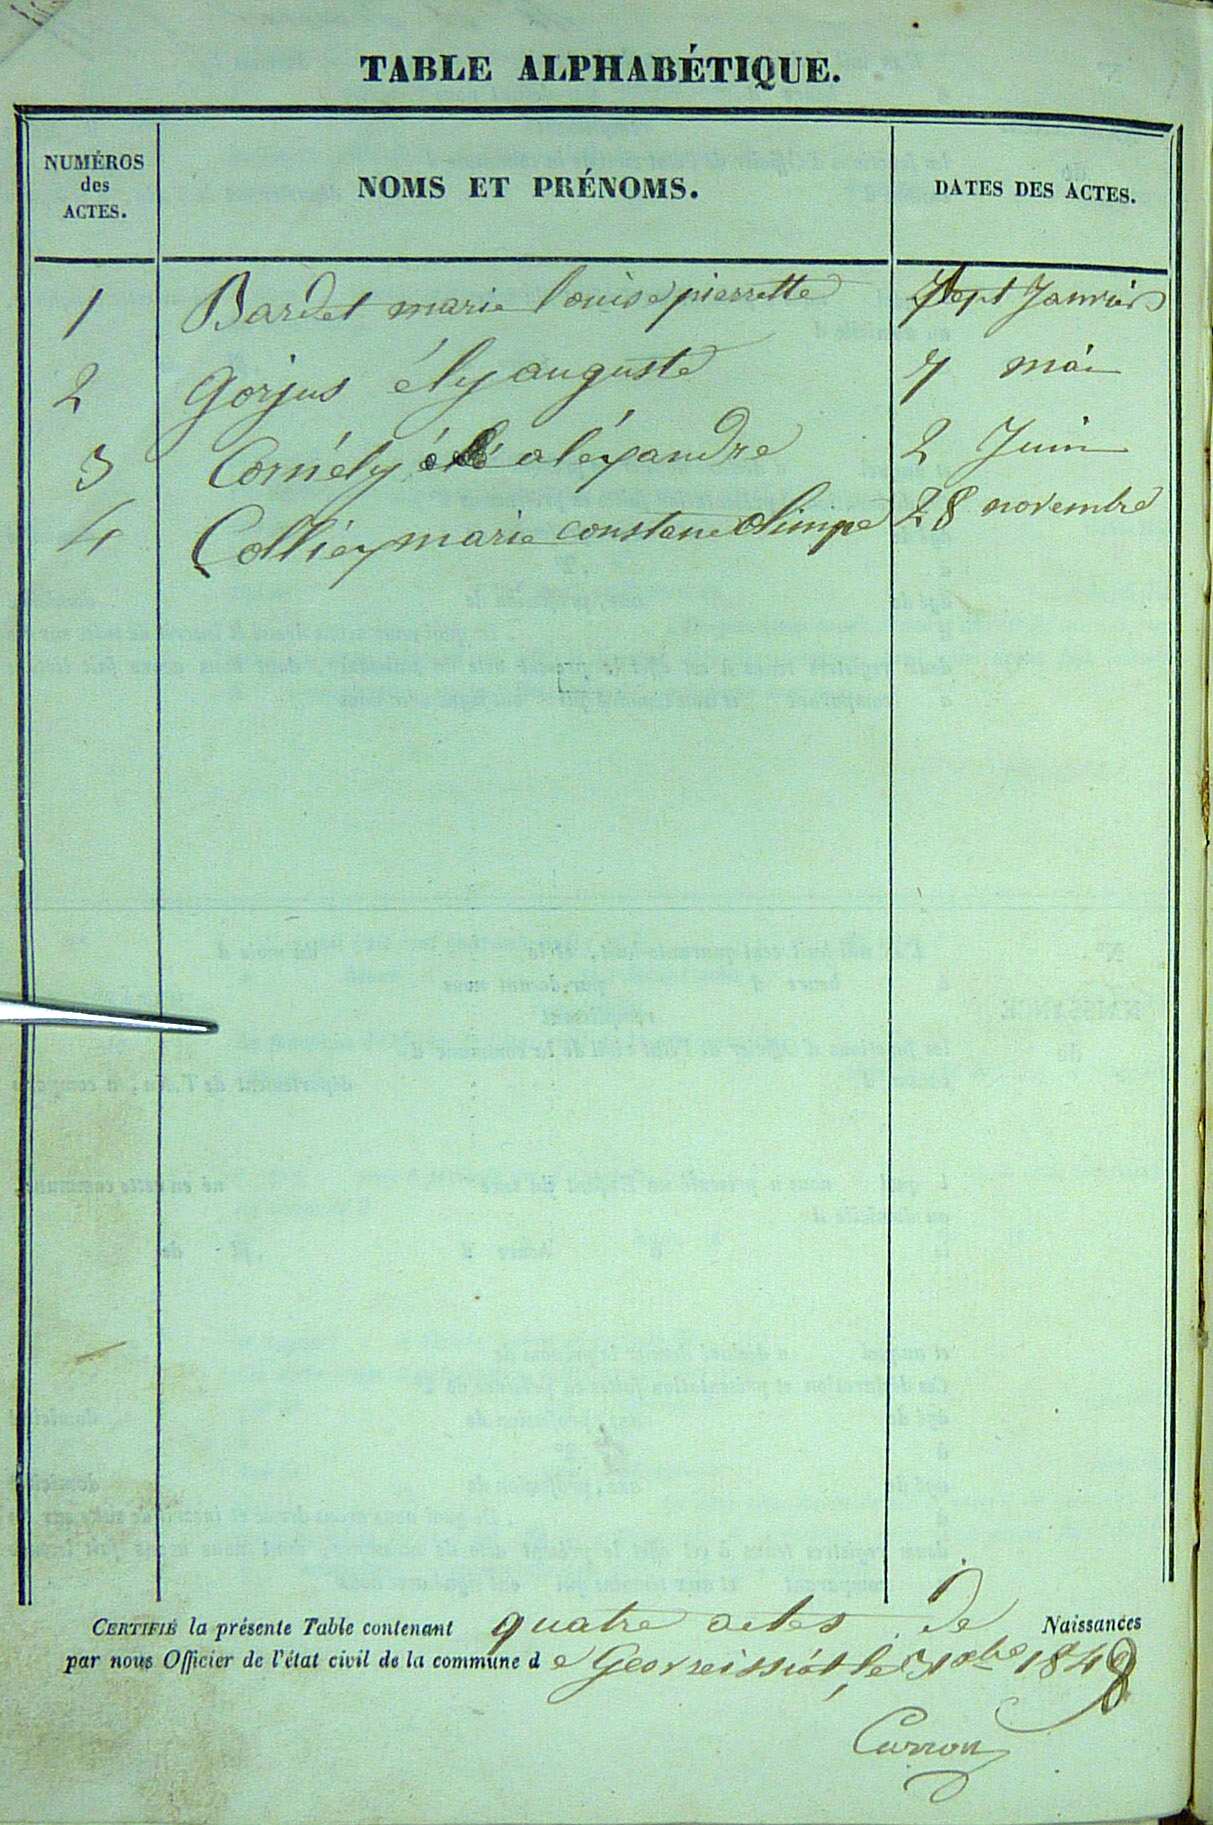 TABLE ALPHABÉTIQUE.
NUMÉROS
des
ACTES.
NOMS ET PRÉNOMS.
DATES DES ACTES.
1 Bardet marie louise pierrette Sept Janvier
2 Gorjus ély auguste 7 mai
3 Cornély aléxandre 2 Juin
4 Colliex marie constance olimpe 28 novembre
CERTIFIÉ la présente Table contenant quatre actes de Naissances
par nous Officier de l'état civil de la commune de Geovreissiat, le 31 xbre 1848
Curron